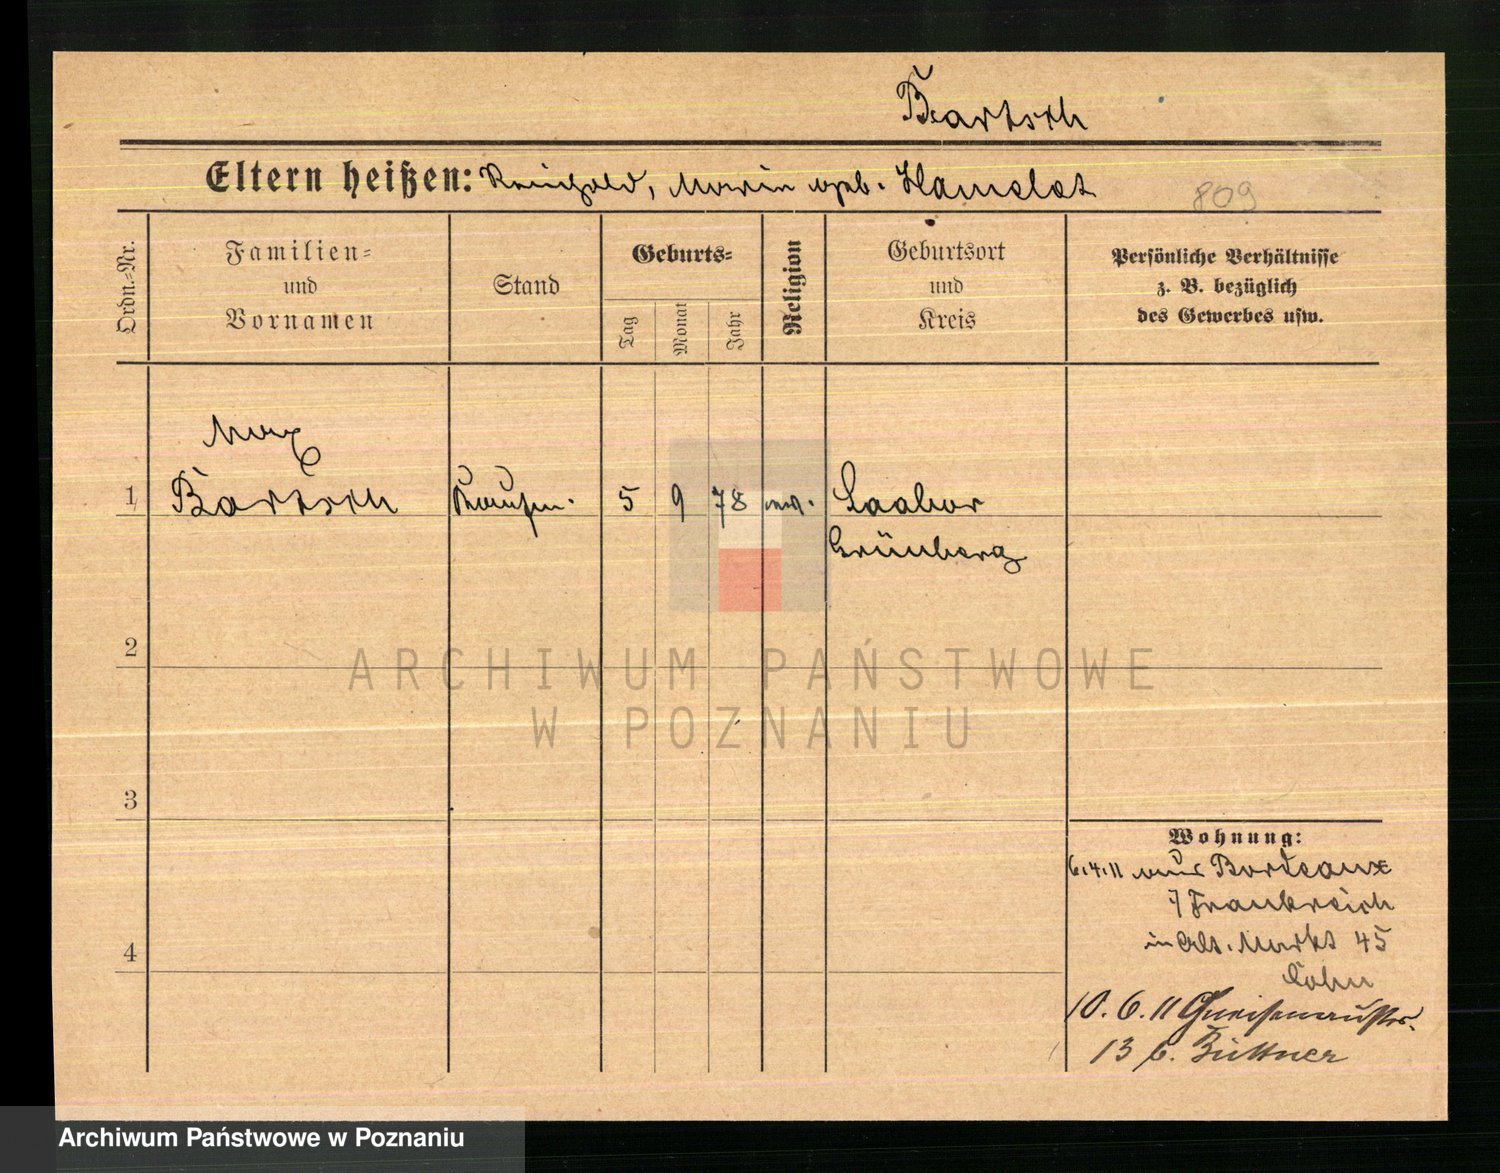 Bartsch
Eltern heißen: Reinhold, Maria geb. Hamelot
809
Ordn.-Nr.
Familien=
und
Vornamen
Stand
Geburts=
Tag
Monat
Jahr
Religion
Geburtsort
und
Kreis
Persönliche Verhältnisse
z. B. bezüglich
des Gewerbes usw.
Max
1 Bartsch Kaufm. 5 9 78 Saabor
Grünberg
2
ARCHIWUM PAŃSTWOWE
W POZNANIU
3
Wohnung:
6.4.11 aus Bordeaux
Frankreich
in Alt. Markt 45
Cohn
4
10.6.11 Gneisenaustr.
13 b. Büttner
Archiwum Państwowe w Poznaniu